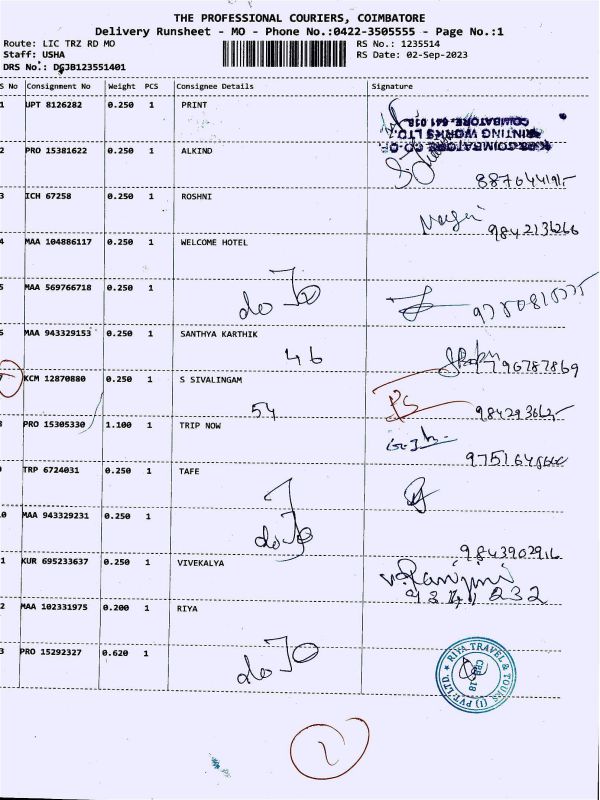 THE PROFESSIONAL COURIERS, COIMBATORE
Delivery Runsheet - MO - Phone No.:0422-3505555 - Page No.:1
Route: LIC TRZ RD MO
RS No.: 1235514
Staff: USHA
RS Date: 02-Sep-2023
DRS No.: DGJB123551401
S No Consignment No Weight PCS Consignee Details Signature
1 UPT 8126282 0.250 1 PRINT
COIMBATORE-641 018.
PRINTING WORKS LTD.
2 PRO 15381622 0.250 1 ALKIND
3 ICH 67258 0.250 1 ROSHNI
9842136266
4 MAA 104886117 0.250 1 WELCOME HOTEL
5 MAA 569766718 0.250 1
do
6 MAA 943329153 0.250 1 SANTHYA KARTHIK
46
7 KCM 12870880 0.250 1 S SIVALINGAM
54
8 PRO 15305330 1.100 1 TRIP NOW
9 TRP 6724031 0.250 1 TAFE
10 MAA 943329231 0.250 1
do
9843902916
11 KUR 695233637 0.250 1 VIVEKALYA
12 MAA 102331975 0.200 1 RIYA
13 PRO 15292327 0.620 1
do
RIYA TRAVEL & TOURS (I) PVT. LTD.
CBE-18